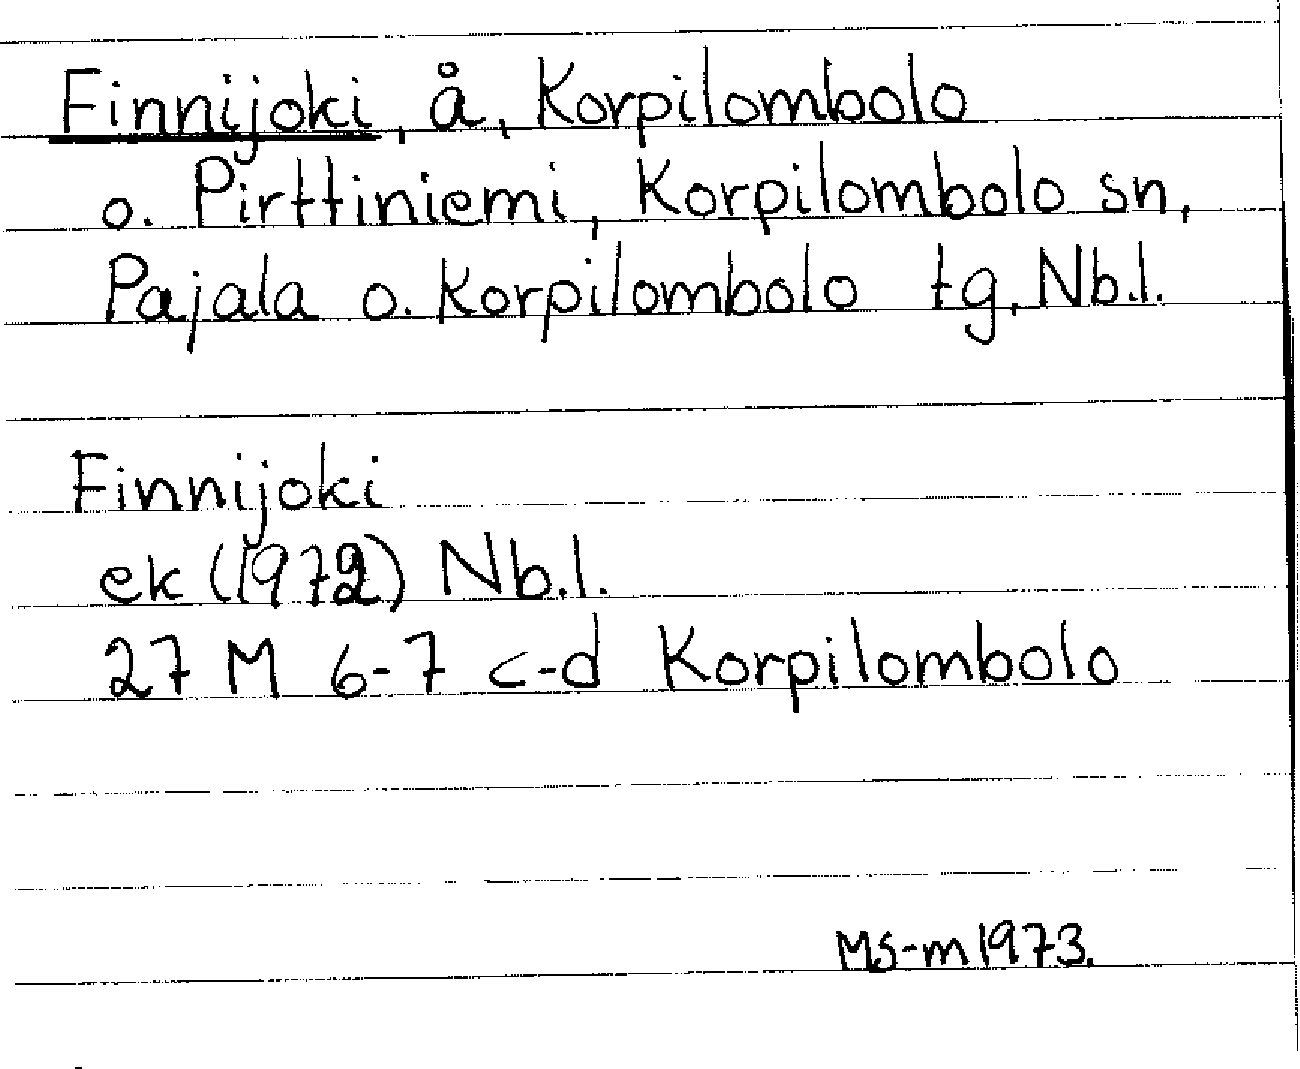 Finnijoki, å, Korpilombolo
o. Pirttiniemi, Korpilombolo sn,
Pajala o. Korpilombolo tg, Nb.l.
Finnijoki
ek (1972) Nb.l.
27 M 6-7 c-d Korpilombolo
MS-m 1973.